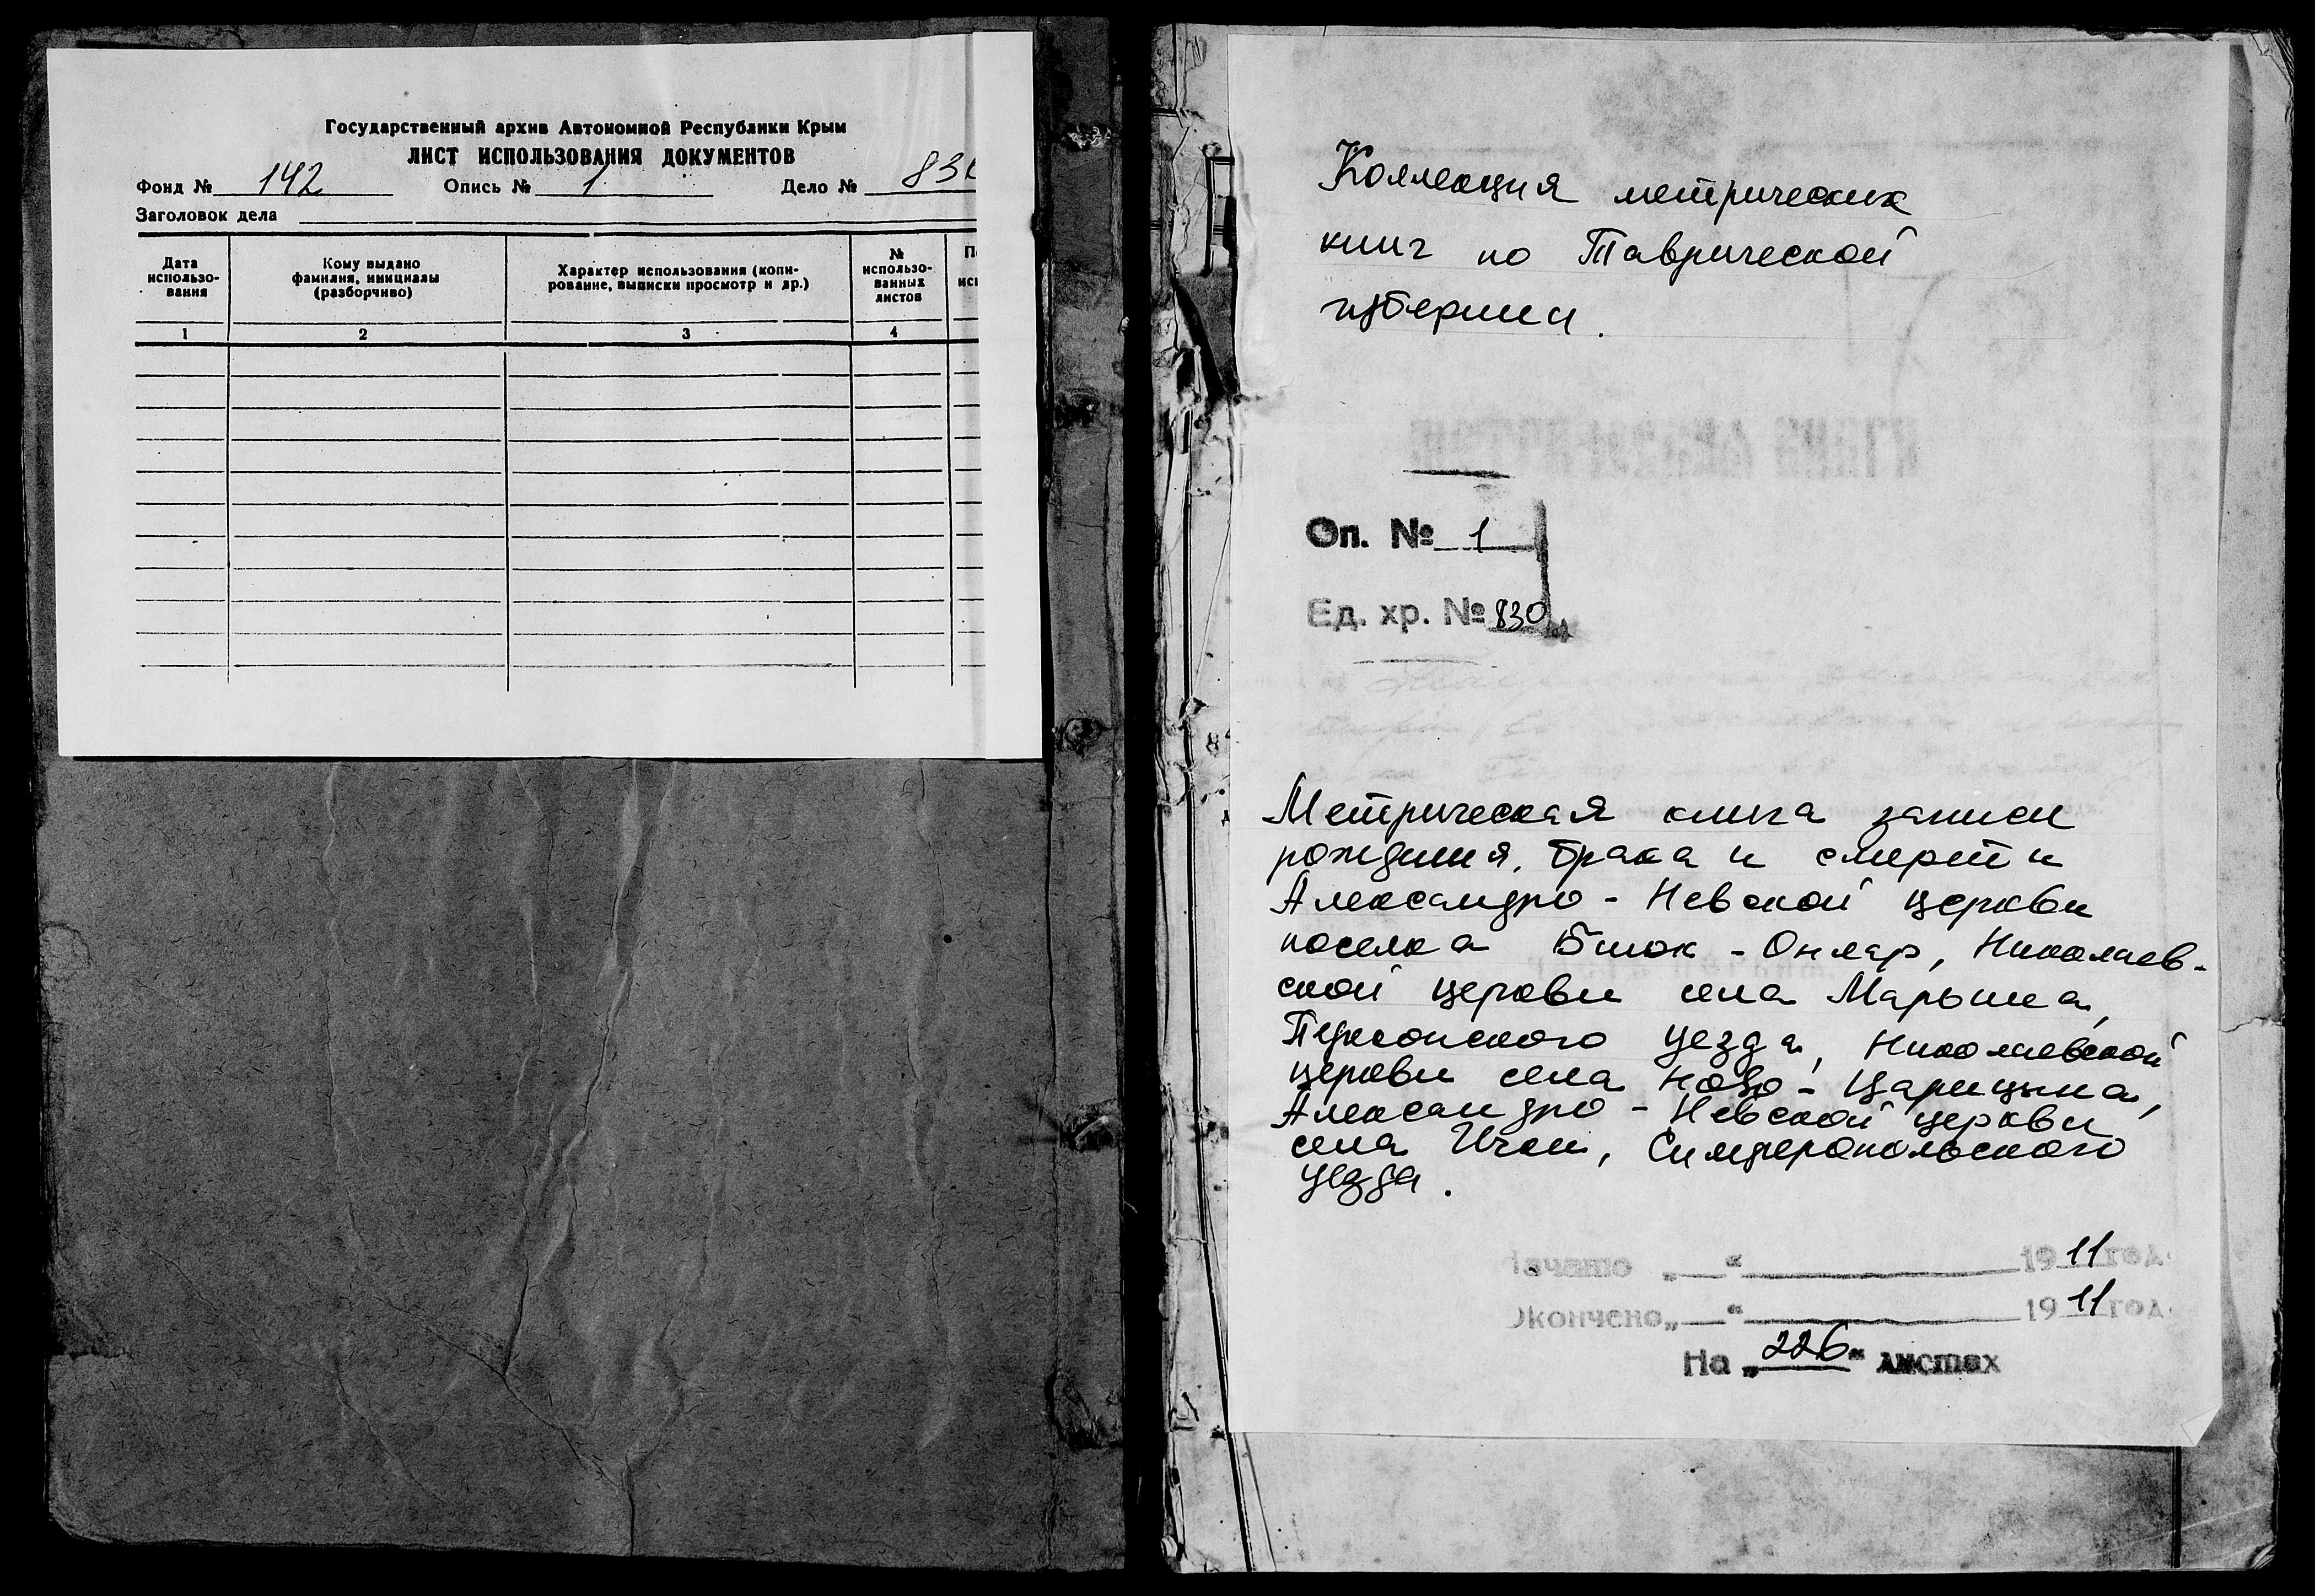 Государственный архив Автономной Республики Крым
ЛИСТ ИСПОЛЬЗОВАНИЯ ДОКУМЕНТОВ
Фонд № 142 Опись № 1 Дело № 830
Заголовок дела
Дата использо-вания
Кому выдано фамилия, инициалы (разборчиво)
Характер использования (копи-рование, выписки просмотр и др.)
№ использо-ванных листов
1 2 3 4
Коллекция метрических
книг по Таврической
губернии.
Оп. № 1
Ед. хр. № 830
Метрическая книга записи
рождения, брака и смерти
Александро-Невской церкви
поселка Биюк-Онлар, Николаев-
ской церкви села Марьина,
Перекопского уезда, Николаевской
церкви села Ново-Царицына,
Александро-Невской церкви
села Ички, Симферопольского
уезда.
Начато „ “ 1911 год
Окончено „ “ 1911 год
На „226“ листах